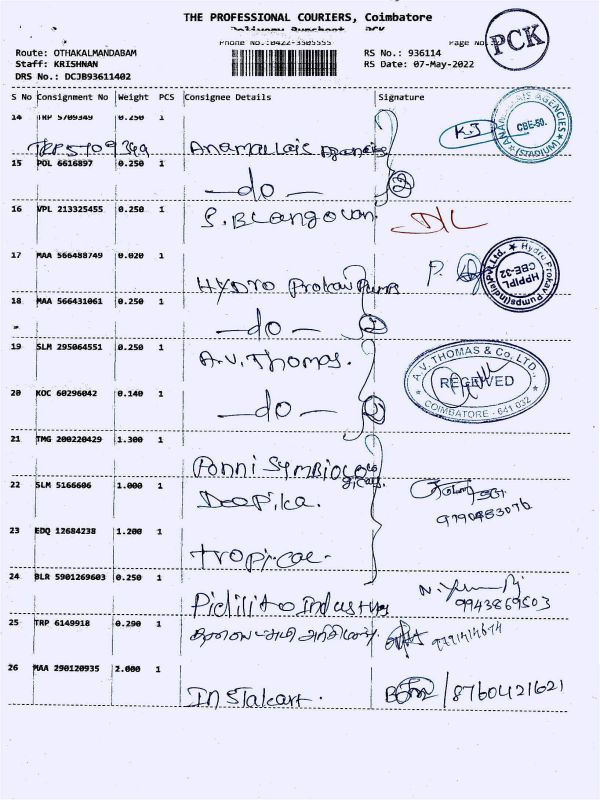 THE PROFESSIONAL COURIERS, Coimbatore
Delivery Runsheet PCK
Phone No.:0422-3505555
Page No
PCK
Route: OTHAKALMANDABAM
Staff: KRISHNAN
DRS No.: DCJB93611402
RS No.: 936114
RS Date: 07-May-2022
S No Consignment No Weight PCS Consignee Details Signature
14 TRP 5709349 0.250 1
TRP5709349 Anamallais Agencies K.J
ANAMALLAIS AGENCIES CBE-50. (STADIUM)
15 POL 6616897 0.250 1
-do- 2
16 VPL 213325455 0.250 1
S. Blangovan
17 MAA 566488749 0.020 1
HYDRO Protav Pump P.
Hydro Protav Pumps(India)Pvt.Ltd. HPPIPL CBE-32
18 MAA 566431061 0.250 1
-do- 2
19 SLM 295064551 0.250 1
A.V. Thomas.
A.V. THOMAS & Co. LTD., RECEIVED COIMBATORE - 641 032
20 KOC 60296042 0.140 1
-do- 2
21 TMG 200220429 1.300 1
Ponni Symbio
22 SLM 5166606 1.000 1
Deepika.
9790483076
23 EDQ 12684238 1.200 1
Tropical
24 BLR 5901269603 0.250 1
Pidilite Industries N.
9943869503
25 TRP 6149918 0.290 1
9791414674
26 MAA 290120935 2.000 1
Instakart. /8760421621